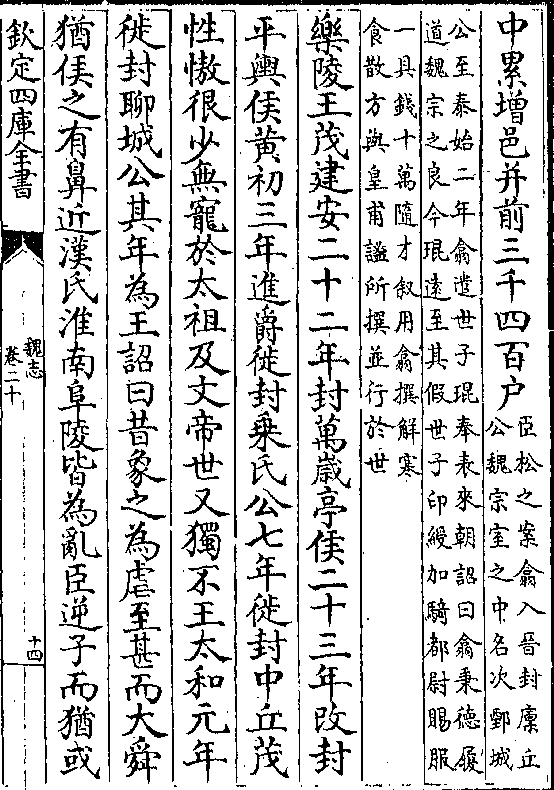 中累增邑并前三千四百户
臣松之案翕入晉封廩丘
公魏宗室之中名次鄄城
公至泰始二年翕遣世子琨奉表來朝詔曰翕秉德履
道魏宗之良今琨遠至其假世子印綬加騎都尉賜服
一具錢十萬隨才叙用翕撰解寒
食散方與皇甫謐所撰並行於世
樂陵王茂建安二十二年封萬嵗亭侯二十三年改封
平輿侯黃初三年進爵徙封乗氏公七年徙封中丘茂
性慠很少無寵於太祖及文帝世又獨不王太和元年
徙封聊城公其年為王詔曰昔象之為虐至甚而大舜
猶侯之有鼻近漢氏淮南阜陵皆為亂臣逆子而猶或
欽定四庫全書
魏志
卷二十
十四